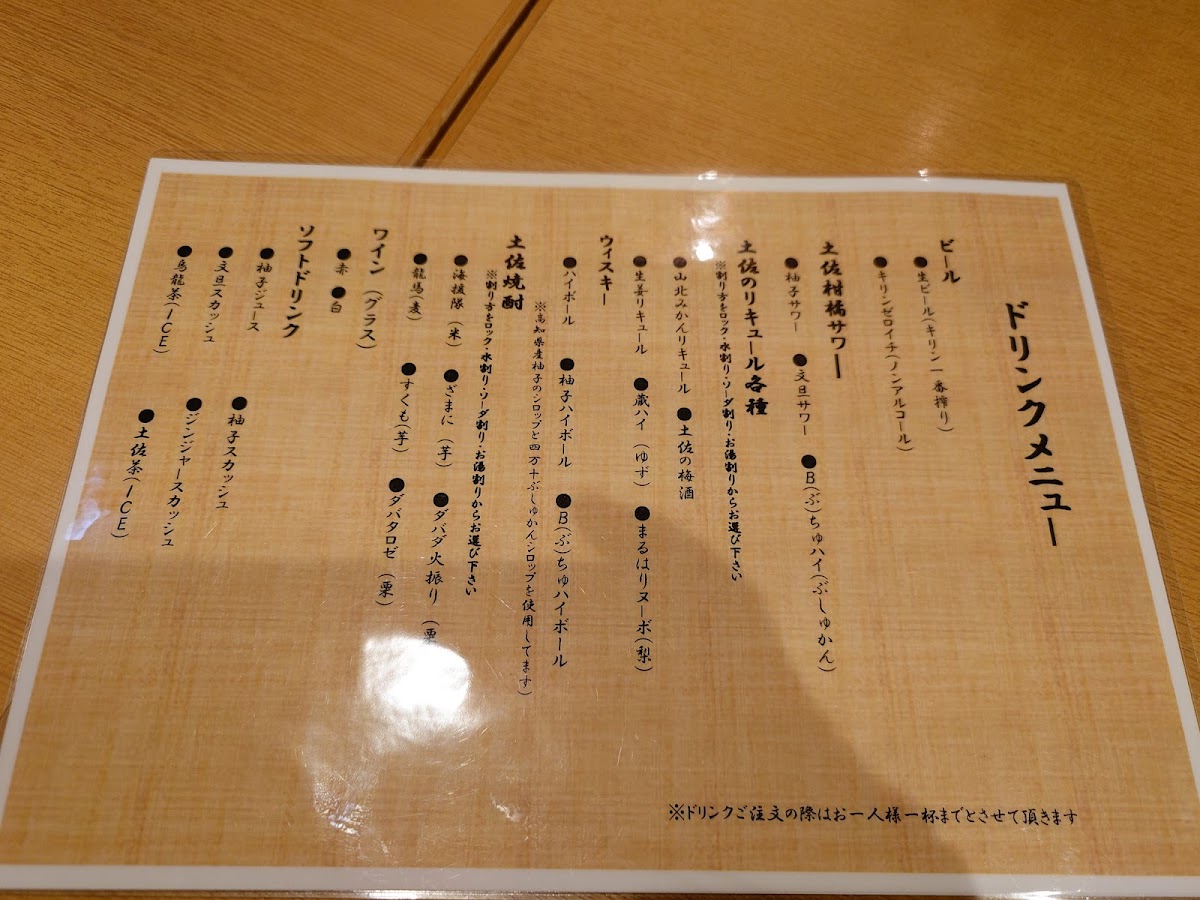 ドリンクメニュー
ビール
●生ビール(キリン一番搾り)
●キリンゼロイチ(ノンアルコール)
土佐柑橘サワー
●柚子サワー ●文旦サワー ●B(ぶ)ちゅハイ(ぶしゅかん)
土佐のリキュール各種
※割り方をロック・水割り・ソーダ割り・お湯割りからお選び下さい
●山北みかんリキュール ●土佐の梅酒
●生姜リキュール ●蔵ハイ(ゆず) ●まるはりヌーボ(梨)
ウィスキー
●ハイボール ●柚子ハイボール ●B(ぶ)ちゅハイボール
※高知県産柚子のシロップと四万十ぶしゅかんシロップを使用してます)
土佐焼酎
※割り方をロック・水割り・ソーダ割り・お湯割りからお選び下さい
●海援隊(米) ●ざまに(芋) ●ダバダ火振り(栗
●龍馬(麦) ●すくも(芋) ●ダバタロゼ(栗)
ワイン(グラス)
●赤 ●白
ソフトドリンク
●柚子ジュース ●柚子スカッシュ
●文旦スカッシュ ●ジンジャースカッシュ
●烏龍茶(ICE) ●土佐茶(ICE)
※ドリンクご注文の際はお一人様一杯までとさせて頂きます